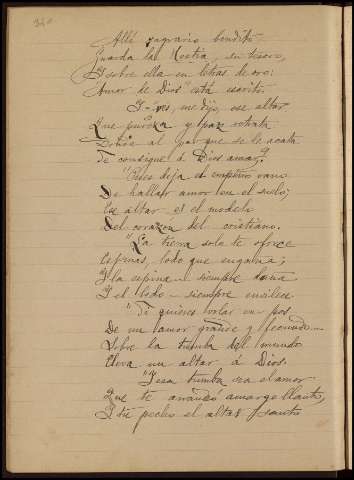 Allí sagrario bendito
Guarda la Hostia, su tesoro,
I sobre ella en letras de oro:
"Amor de Dios" está escrito.
I ves, me dijo, ese altar
Que pureza y paz retrata
al par que se le acata
Te consigue á Dios amar?
"Pues deja el empeño vano
De hallar amor en el suelo;
Ese altar es el modelo
Del corazon del cristiano.
"La tierra solo te ofrece
Espinas, lodo que engaña;
I la espina siempre daña
I el lodo siempre envilece
"Si quieres volar en pos
De un amor grande y fecundo
Sobre la tumba del mundo
Eleva un altar á Dios.
"I esa tumba sea el amor
Que te arrancó amargo llanto,
I tu pecho el altar santo